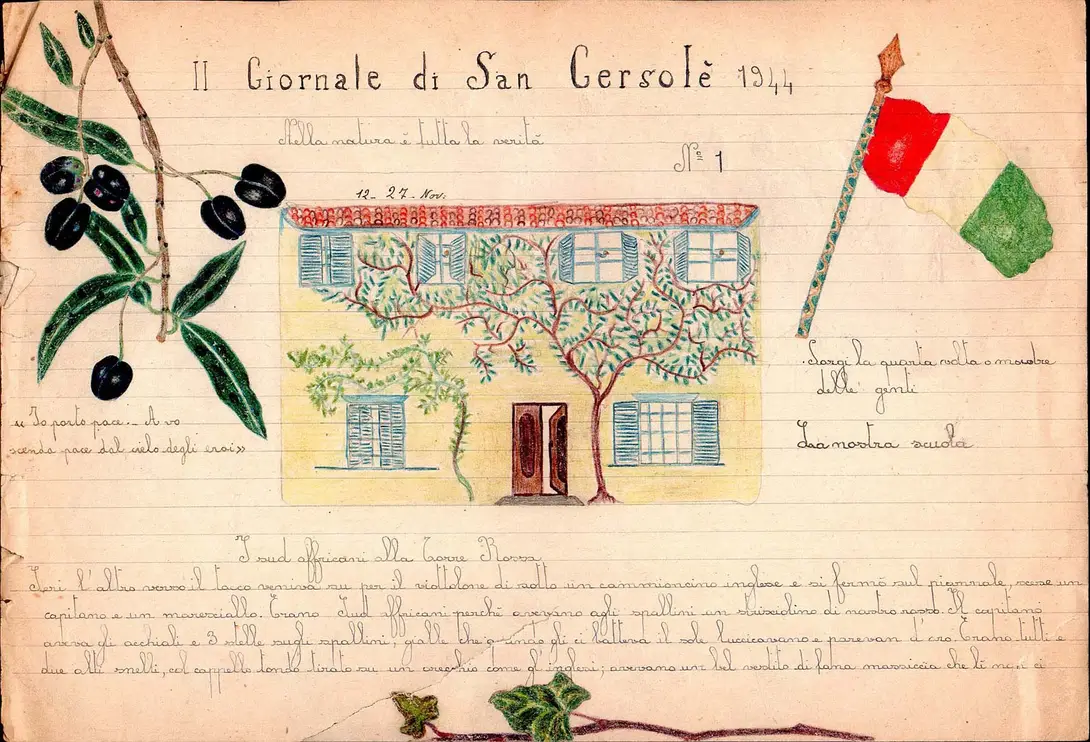 Il Giornale di San Gersolè 1944
Nella natura è tutta la verità
N° 1
12 - 27 - Nov.
Sorgi la quarta volta o madre
delle genti
La nostra scuola
« Io porto pace. - A vo
scenda pace dal cielo degli eroi »
I sud affricani alla Torre Rossa
Ieri l'altro verso il tocco veniva su per il viottolone di sotto un cammioncino inglese e si fermò sul piazzale, scese un
capitano e un maresciallo. Erano Sud Affricani perchè avevano agli spallini un strisciolino di nastro rosso. Il capitano
aveva gli occhiali e 3 stelle sugli spallini, gialle che gli ci batteva il sole luccicavano e parevan d'oro. Erano tutti e
due alti snelli, col cappello tondo tirato su un orecchio come gl'inglesi, avevano un bel vestito di lana massiccia che lì non ci